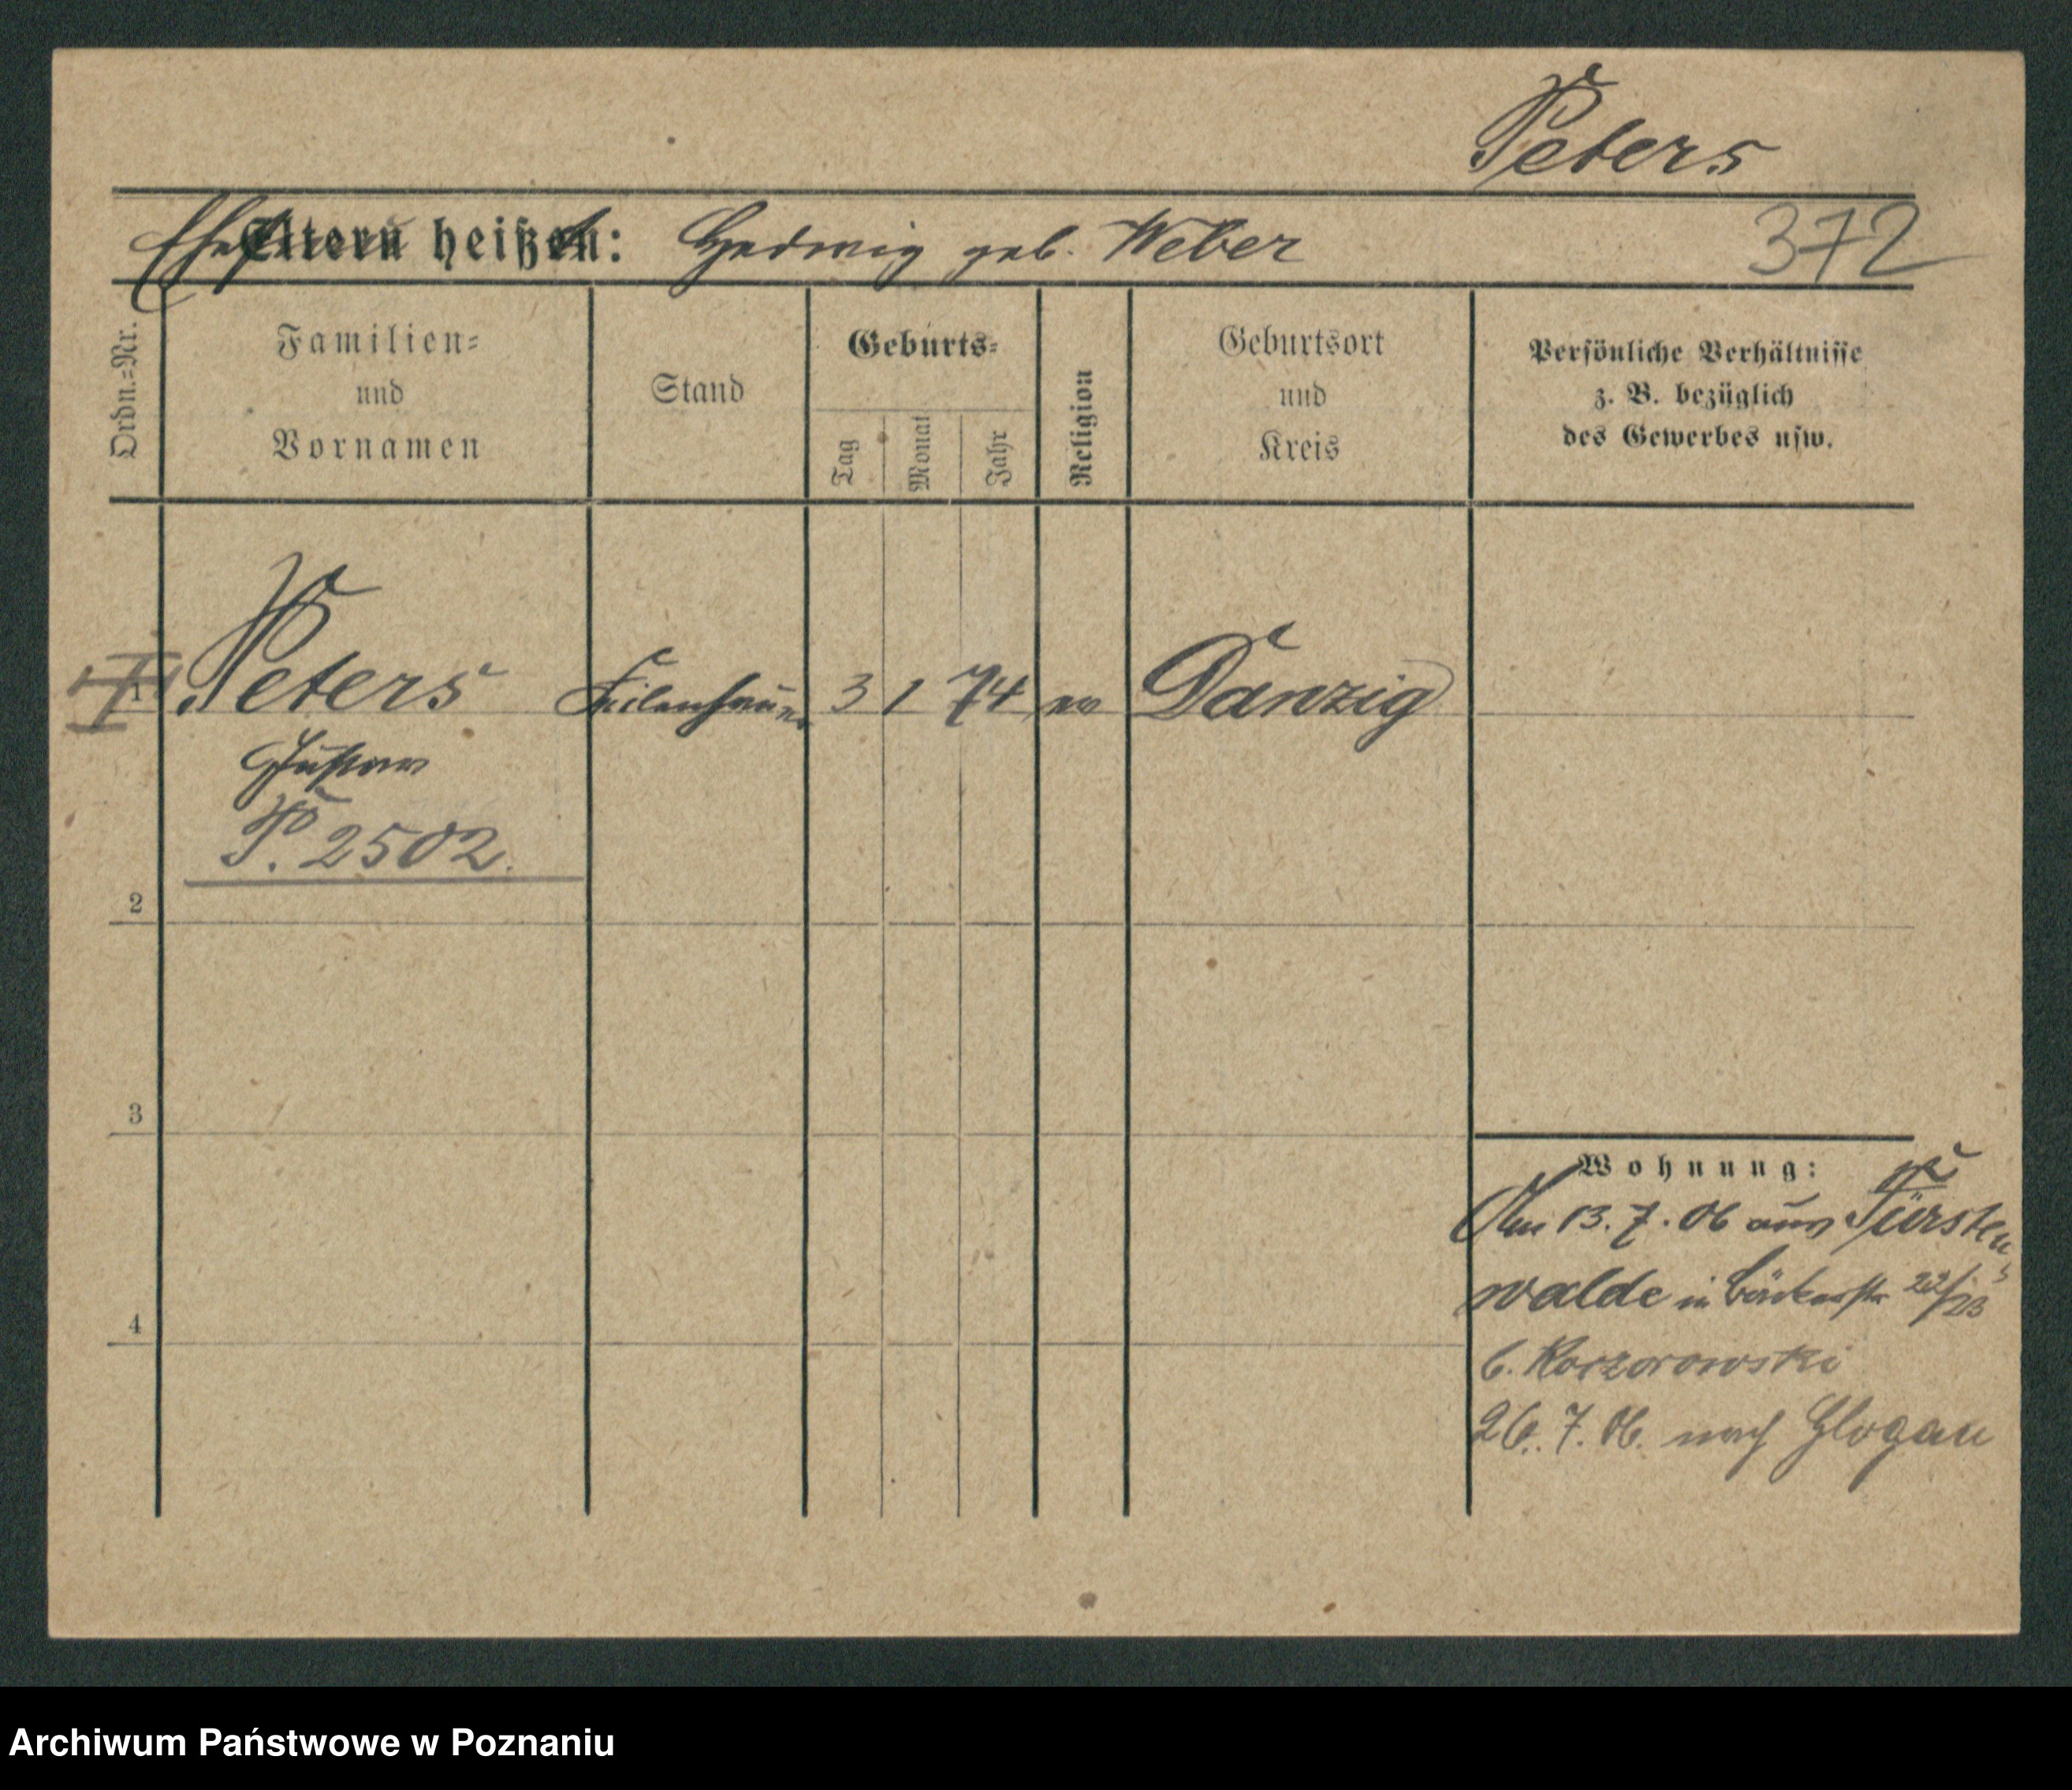 Peters
Ehefrau heißt: Hedwig geb. Weber 372
Ordn.=Nr.
Familien=
und
Vornamen
Stand
Geburts=
Tag
Monat
Jahr
Religion
Geburtsort
und
Kreis
Persönliche Verhältnisse
z. B. bezüglich
des Gewerbes usw.
1 Peters Feilenhauer 3 1 74 ev Danzig
Gustav
P. 2502.
2
3
4
Wohnung:
Am 13.7.06 aus Fürsten
walde in Bäckerstr 22/23
b. Korzorowski
26.7.06. nach Glogau
Archiwum Państwowe w Poznaniu